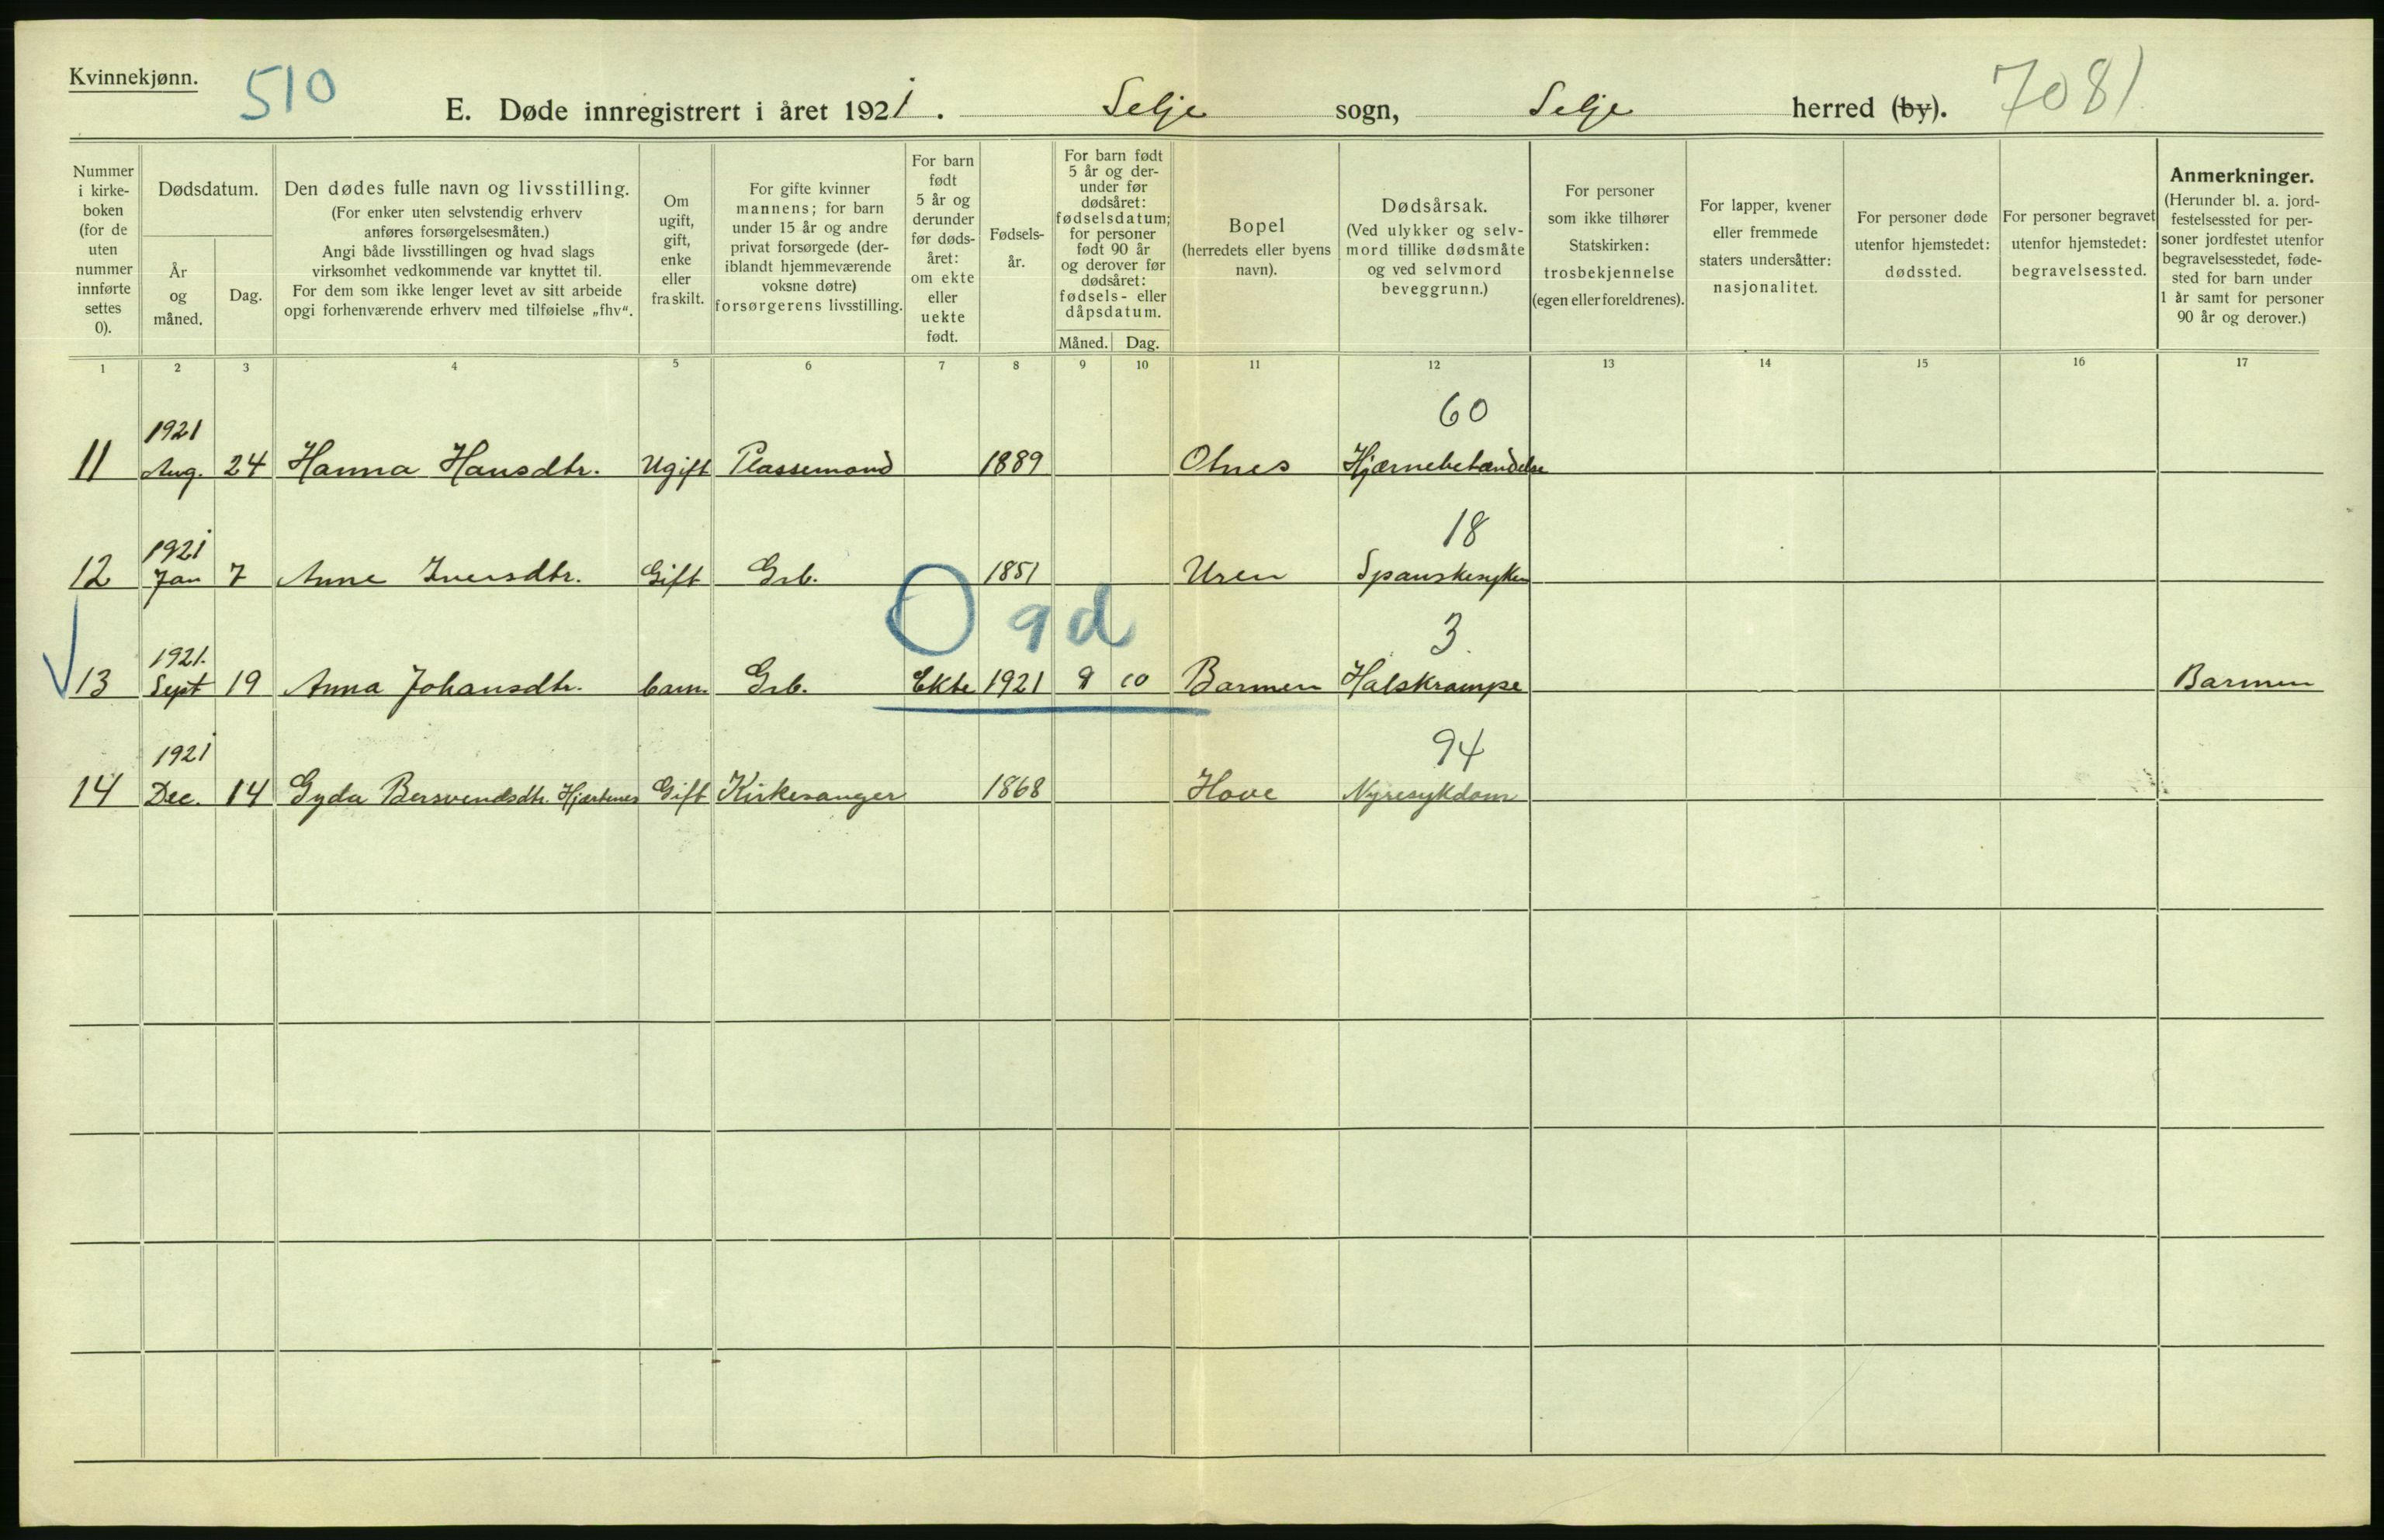 Kvinnekjønn.
510
E. Døde innregistrert i året 1921. Selje sogn, Selje herred (by). 7081
Nummer i kirke-boken (for de uten nummer innførte settes 0).
Dødsdatum.
År og måned.
Dag.
Den dødes fulle navn og livsstilling.
(For enker uten selvstendig erhverv
anføres forsørgelsesmåten.)
Angi både livsstillingen og hvad slags
virksomhet vedkommende var knyttet til.
For dem som ikke lenger levet av sitt arbeide
opgi forhenværende erhverv med tilføielse „fhv“.
Om ugift, gift, enke eller fraskilt.
For gifte kvinner
mannens; for barn
under 15 år og andre
privat forsørgede (der-
iblandt hjemmeværende
voksne døtre)
forsørgerens livsstilling.
For barn født 5 år og derunder før døds-året: om ekte eller uekte født.
Fødsels-år.
For barn født
5 år og der-
under før
dødsåret:
fødselsdatum;
for personer
født 90 år
og derover før
dødsåret:
fødsels- eller
dåpsdatum.
Måned. Dag.
Bopel
(herredets eller byens
navn).
Dødsårsak.
(Ved ulykker og selv-
mord tillike dødsmåte
og ved selvmord
beveggrunn.)
For personer
som ikke tilhører
Statskirken:
trosbekjennelse
(egen eller foreldrenes).
For lapper, kvener
eller fremmede
staters undersåtter:
nasjonalitet.
For personer døde
utenfor hjemstedet:
dødssted.
For personer begravet
utenfor hjemstedet:
begravelsessted.
Anmerkninger.
(Herunder bl. a. jord-
festelsessted for per-
soner jordfestet utenfor
begravelsesstedet, føde-
sted for barn under
1 år samt for personer
90 år og derover.)
1 2 3 4 5 6 7 8 9 10 11 12 13 14 15 16 17
1921 60
11 Aug. 24 Hanna Hansdtr. Ugift Plassemand 1889 Otnes Hjærnebetændelse
1921 18
12 Jan 7 Anne Iversdtr. Gift Grb. 1851 Uren Spanskesyken
O 9 d
1921. 3
13 Sept 19 Anna Johansdtr. barn. Grb. Ekte 1921 9 10 Barmen Halskrampe Barmen
1921 94
14 Dec. 14 Gyda Bersvendsdtr. Hjertenes Gift Kirkesanger 1868 Hove Nyresykdom